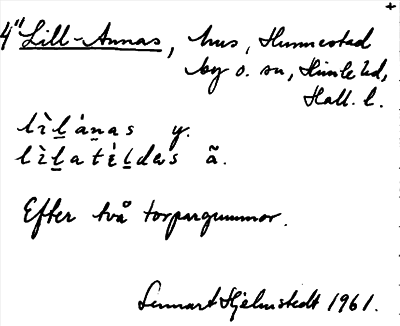 4" Lill-Annas, hus, Hunnestad
by o. sn, Himle hd,
Hall. l.
lìlánas y.
lìlatéldas ã.
Efter två torpargummor.
Lennart Hjelmstedt 1961.